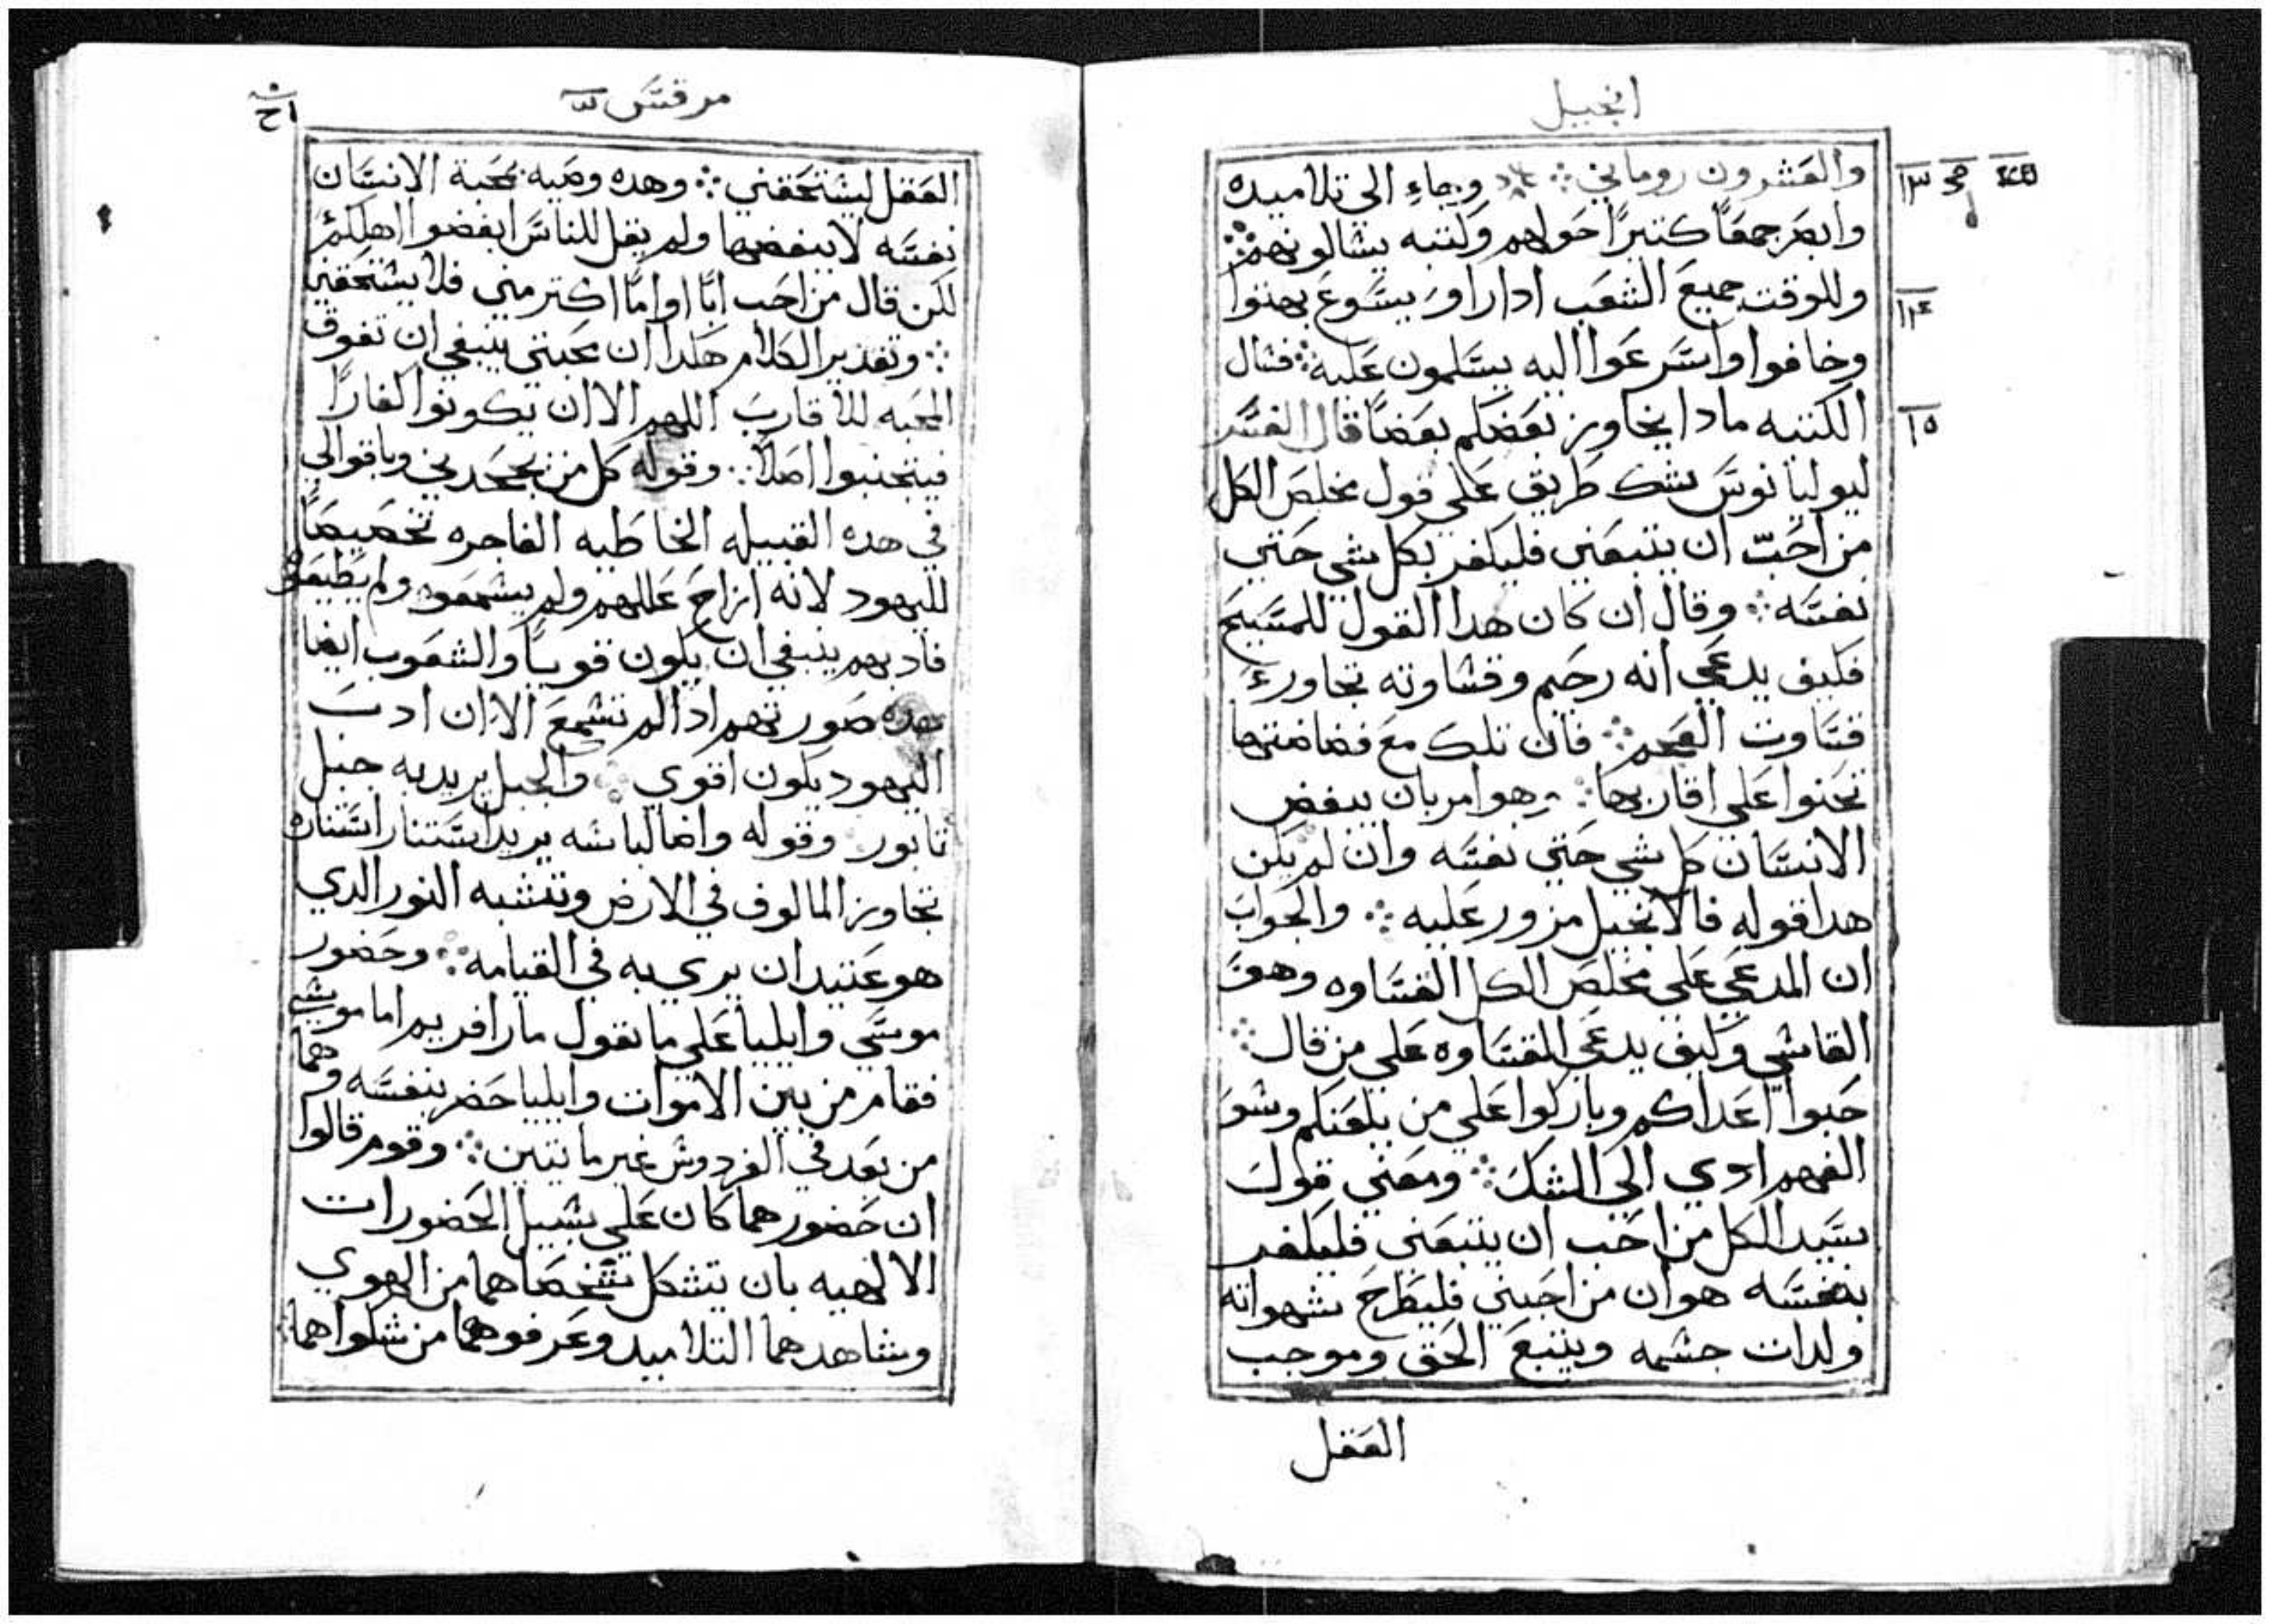 انجيل
والعشرون روماني ⁘ وجاء الى تلاميده
وابصر جمعًا كتيرًا حولهم وكتبه يسالونهم ⁘
وللوقت جميع الشعب ادا راو يسوع بهتوا
وخافوا واسرعوا اليه يسلمون عليه ⁘ فسال
الكتبه مادا يخاوز بعضكم بعضًا قال المفسر
ليوليانوس شك طريق على قول مخلص الكل
من احب ان يتبعني فليكفر بكل شي حتى
نفسه ⁘ وقال ان كان هدا القول للمسيح
فكيف يدعي انه رحيم وقساوته تجاوزت
قساوت ⁘ فان تلك مع فضاضتها
تحنوا على اقاربها ⁘ وهو امر بان يبغض
الانسان كل شي حتى نفسه وان لم يكن
هدا قوله فالانجيل مزور عليه ⁘ والجواب
ان المدعي على مخلص الكل القساوه وهو
القاسي وكيف يدعي القساوه على من قال ⁘
حبوا اعداكم وباركوا على من يلعنكم وسو
الفهم ادى الى الشك ⁘ ومعنى قول
سيد الكل من احب ان يتبعني فليكفر
بنفسه هو ان من احبني فليطرح شهواته
ولدات جسمه ويتبع الحق وموجب
العقل
١٣
١٤
١٥
مرقس
العقل ليستحقني ⁘ وهده وصيه محبة الانسان
نفسه لا يبغضها ولم يقل للناس ابغضوا اهلكم
لكن قال من احب ابًا او امًا اكتر مني فلا يستحقني
⁘ وتقدير الكلام هكدا ان محبتي ينبغي ان تفوق
المحبه للاقارب اللهم الا ان يكونوا كفارًا
فيتجنبوا اصلًا ⁘ وقوله كل من يجحدني وباقوالي
في هده القبيله الخاطيه الفاجره تخصيصًا
لليهود لانه ازاح عللهم ولم يسمعوه ولم يطيعوه
فادبهم ينبغي ان يكون قويًا والشعوب ايضا
هده صورتهم ادا لم تسمع الا ان ادب
اليهود يكون اقوى ⁘ والجبل يريد به جبل
تابور ⁘ وقوله واضا لباسه يريد استنار استناره
تجاوز المالوف في الارض وتشبه النور الدي
هو عتيد ان يرى به في القيامه ⁘ وحضور
موسى وايليا على ما يقول مار افريم اما موسى
فقام من بين الاموات وايليا حضر بنفسه وهما
من بعد في الفردوس غير مايتين ⁘ وقوم قالوا
ان حضورهما كان على سبيل الحضورات
الالهيه بان تشكل شخصاهما من الهوى
وشاهدهما التلاميد وعرفوهما من شكواهما